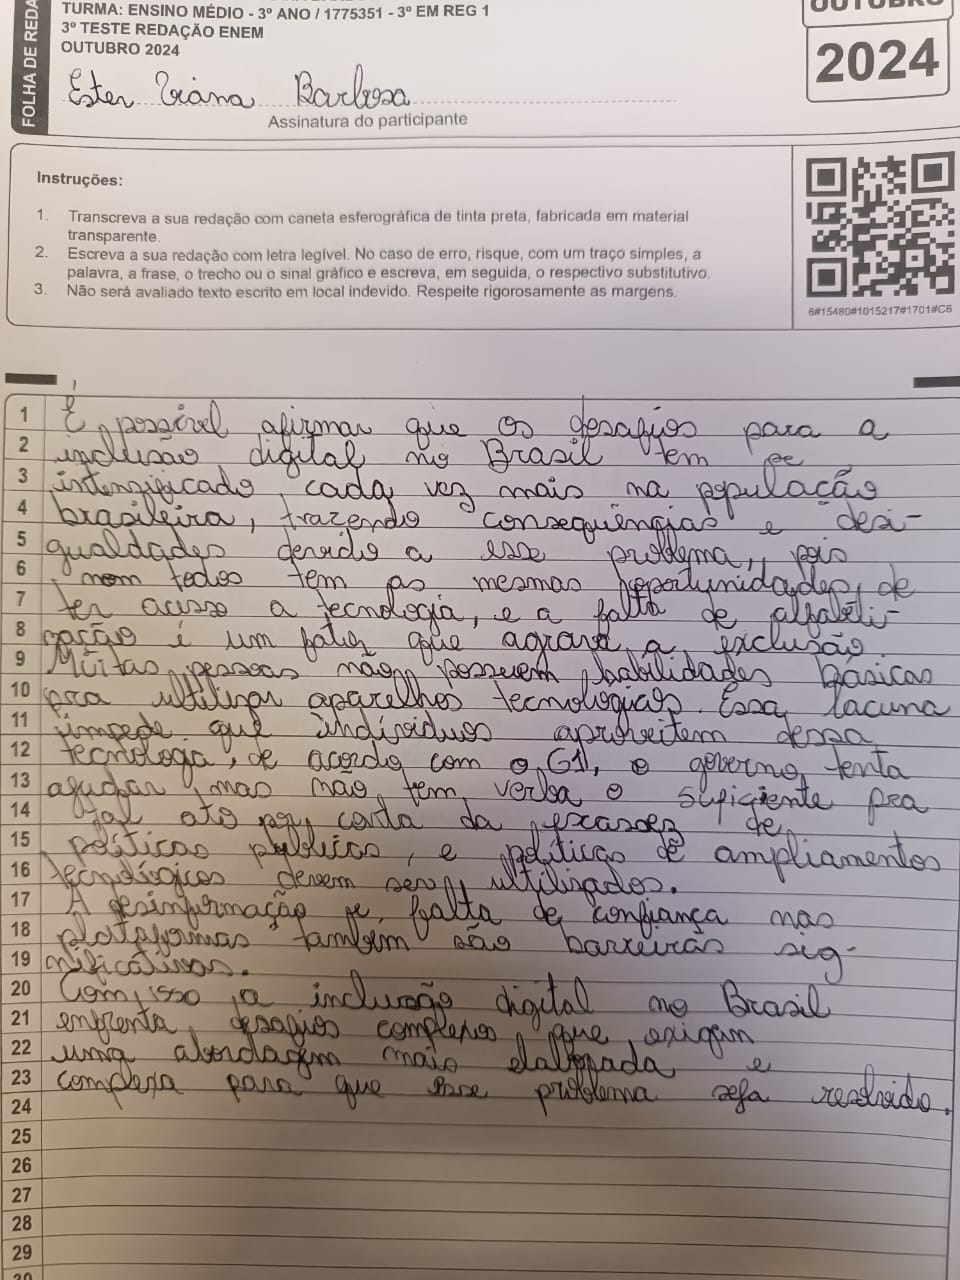 FOLHA DE REDA
TURMA: ENSINO MÉDIO - 3º ANO / 1775351 - 3º EM REG 1
3º TESTE REDAÇÃO ENEM
OUTUBRO 2024
OUTUBRO
2024
Ester Viana Barbosa
Assinatura do participante
Instruções:
1. Transcreva a sua redação com caneta esferográfica de tinta preta, fabricada em material
transparente.
2. Escreva a sua redação com letra legível. No caso de erro, risque, com um traço simples, a
palavra, a frase, o trecho ou o sinal gráfico e escreva, em seguida, o respectivo substitutivo.
3. Não será avaliado texto escrito em local indevido. Respeite rigorosamente as margens.
6#15480#1015217#1701#C6
1 É possível afirmar que os desafios para a
2 inclusão digital no Brasil tem se
3 intenzificado, cada vez mais na população
4 brasileira, trazendo consequências e desi-
5 gualdades devido a esse problema, pois
6 nem todos tem as mesmas oportunidades, de
7 ter acesso a tecnologia, e a falta de alfabeti-
8 zação é um fator que agrava a exclusão.
9 Muitas pessoas não possuem habilidades básicas
10 pra utilizar aparelhos tecnologicos. Essa lacuna
11 impede que indivíduos aproveitem dessa
12 tecnologia, de acordo com o G1, o governo tenta
13 ajudar, mas não tem verba o suficiente pra
14 tal ato por conta da escasses de
15 políticas públicas, e políticas de ampliamentos
16 tecnológicos devem ser utilizados.
17 A desinformação e falta de confiança nas
18 plataformas também são barreiras sig-
19 nificativas.
20 Com isso, a inclusão digital no Brasil
21 enfrenta desafios complexos que exigem
22 uma abordagem mais elaborada e
23 complexa para que esse problema seja resolvido.
24
25
26
27
28
29
30